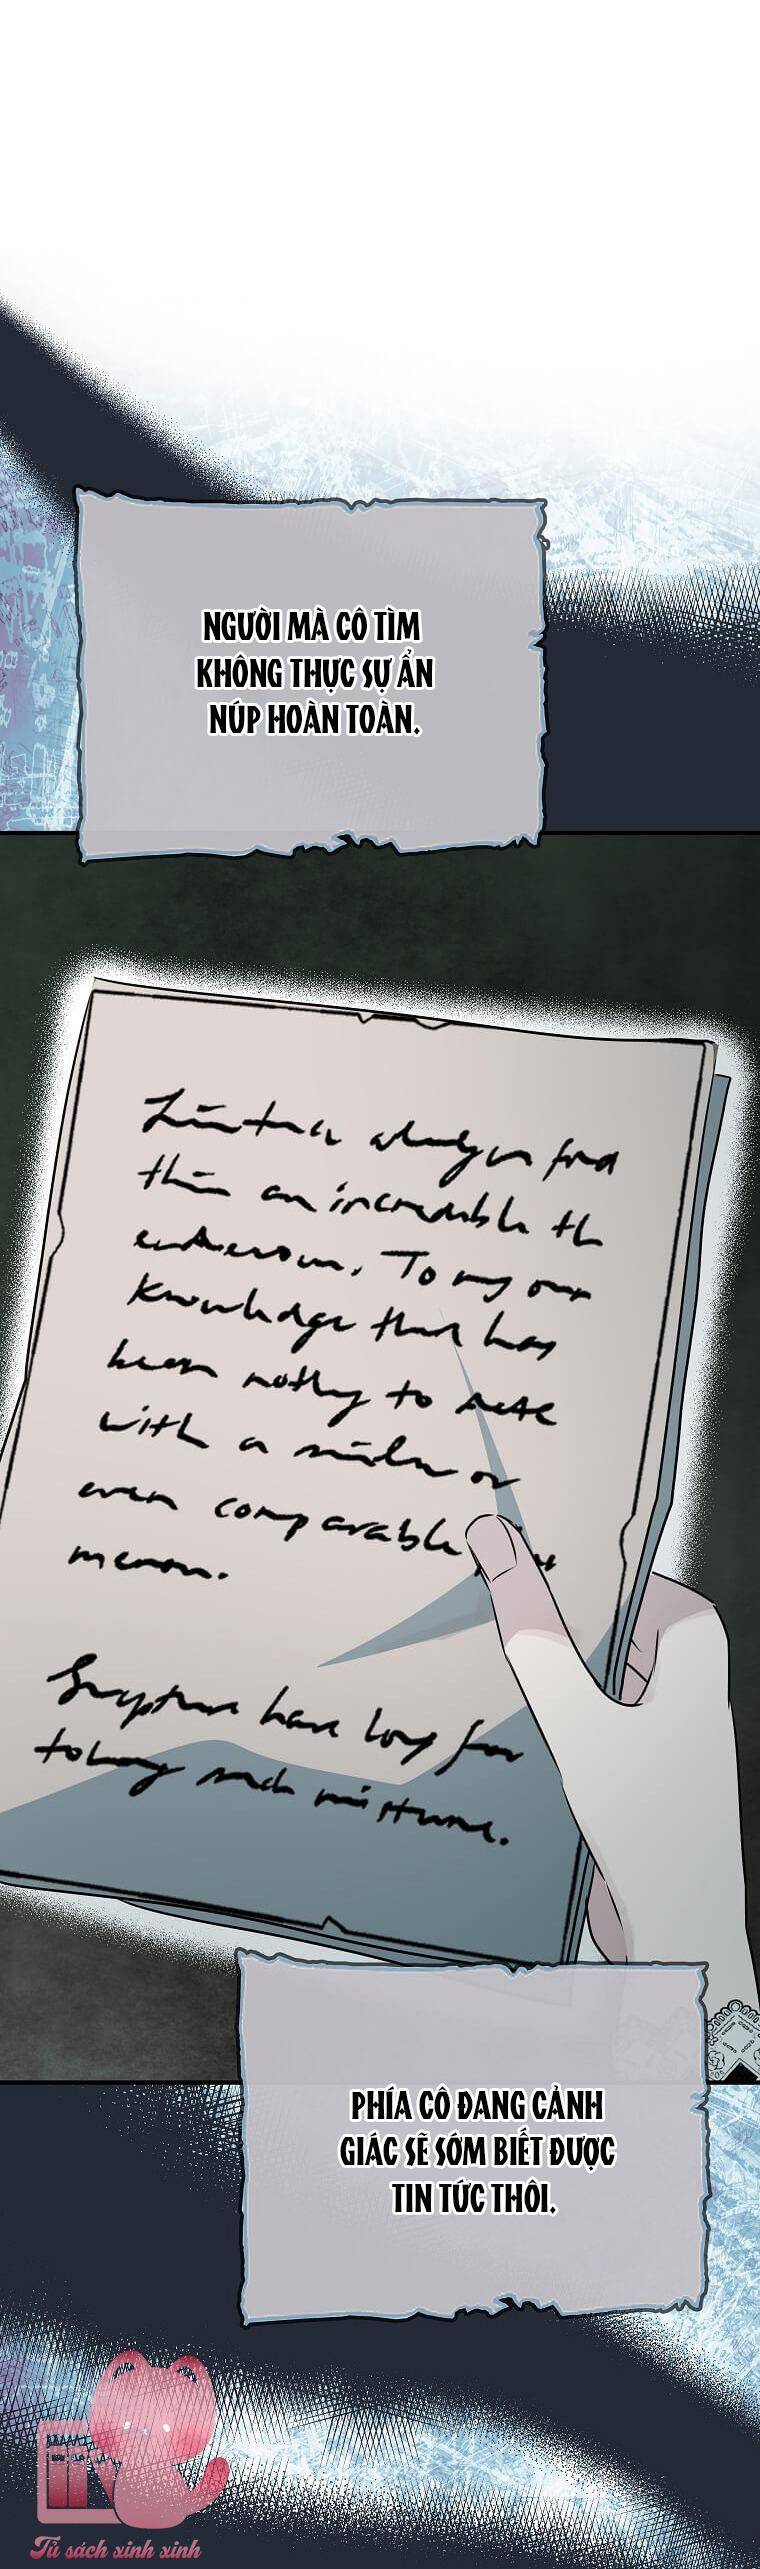 NGƯỜI MÀ CÔ TÌM
KHÔNG THỰC SỰ ẨN
NÚP HOÀN TOÀN.
always find
this an incredible th
. To my own
knowledge that has
been nothing to
with a similar or
even comparable
have long
such mixture.
PHÍA CÔ ĐANG CẢNH
GIÁC SẼ SỚM BIẾT ĐƯỢC
TIN TỨC THÔI.
Tủ sách xinh xinh